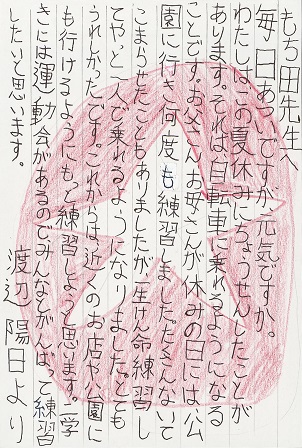 もち田先生へ
毎日あついですが、元気ですか。
わたしはこの夏休みにちょうせんしたことが
あります。それは自転車に乗れるようになる
ことです。お父さんお母さんが休みの日には公
園に行き何度も練習しました。たくさんないて
こまらせたこともありましたが一生けん命練習し
てやっと一人で乗れるようになりました。とても
うれしかったです。これからは近くのお店や公園に
も行けるようにもっと練習しようと思います。二学
きには運動会があるのでみんなとがんばって練習
したいと思います。
渡辺 陽日より